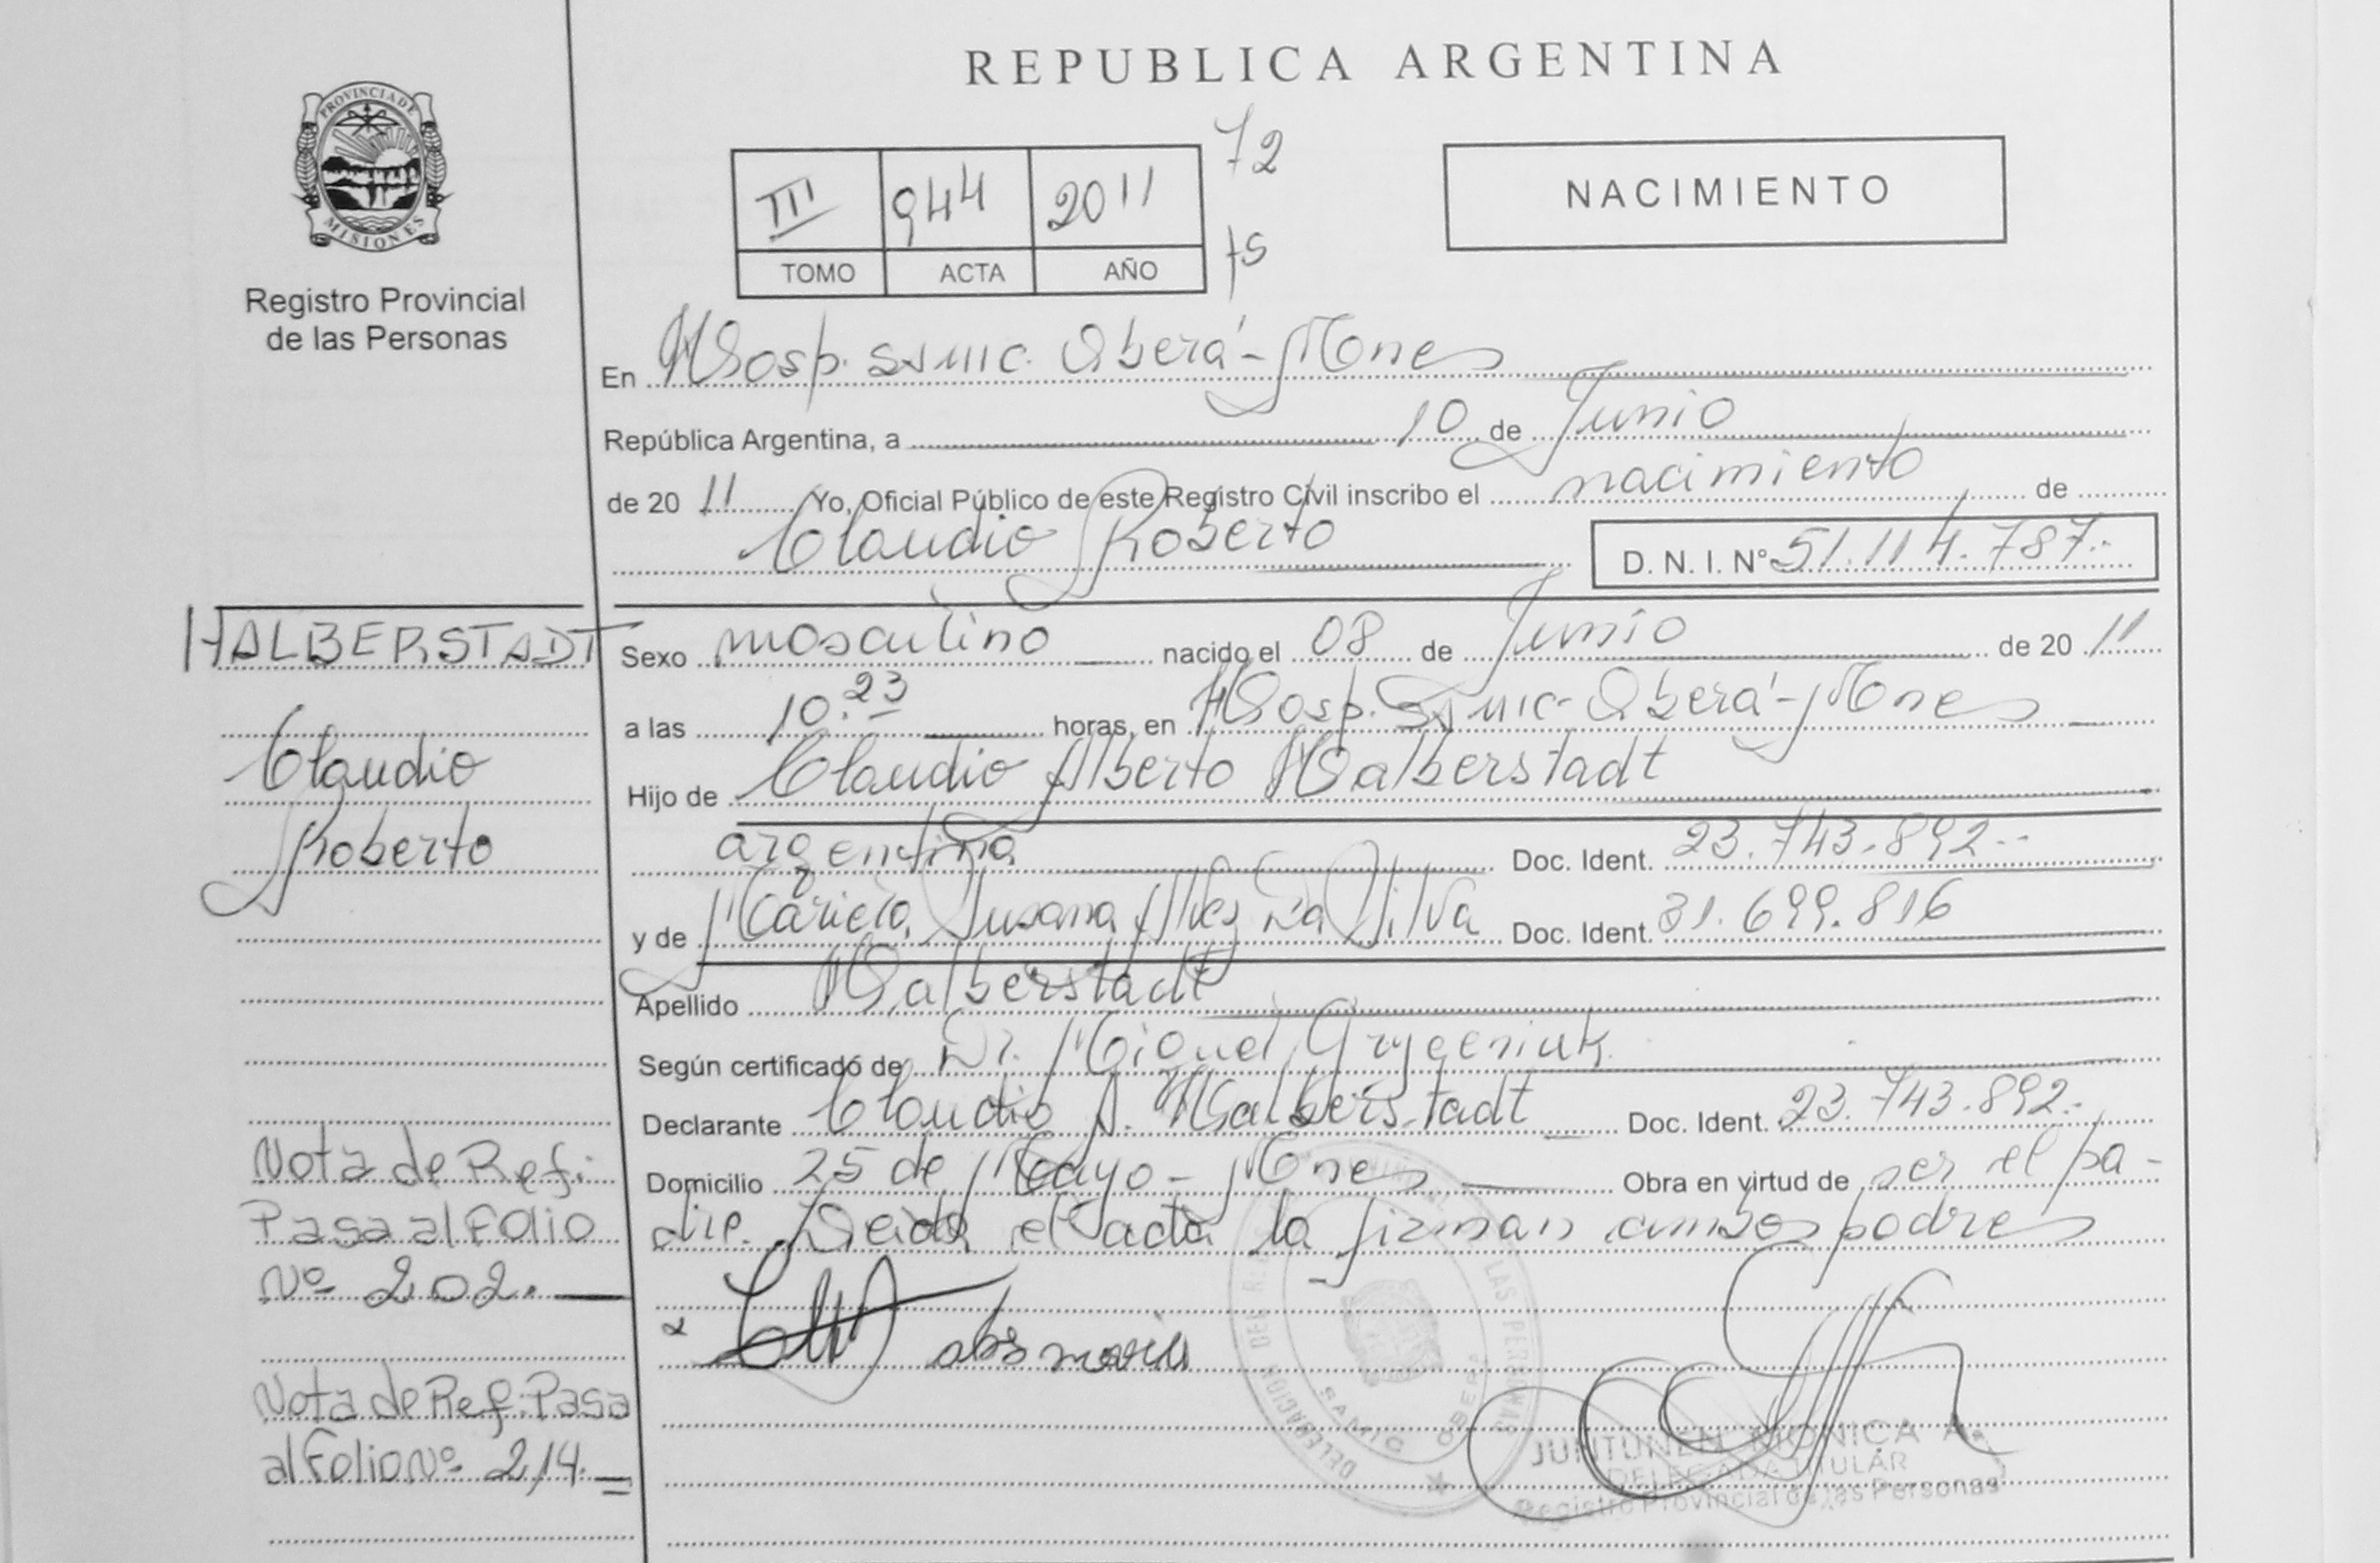 REPUBLICA ARGENTINA
PROVINCIA DE
MISIONES
Registro Provincial
de las Personas
III 944 2011 72
TOMO ACTA AÑO 75
NACIMIENTO
En Hosp. SAMIC. Oberá - Mnes
República Argentina, a 10 de Junio
de 20 11 Yo, Oficial Público de este Registro Civil inscribo el nacimiento de
Claudio Roberto D. N. I. Nº 51.114.787.-
HALBERSTADT
Claudio
Roberto
Sexo masculino nacido el 08 de Junio de 20 11
a las 10.23 horas, en Hosp. SAMIC - Oberá - Mnes
Hijo de Claudio Alberto Halberstadt
argentina Doc. Ident. 23.743.892.-
y de Susana Alves Da Silva Doc. Ident. 31.699.816
Apellido Halberstadt
Según certificado de Dr. Miguel
Declarante Claudio A. Halberstadt Doc. Ident. 23.743.892.-
Domicilio 25 de Mayo - Mnes Obra en virtud de ser el pa-
dre. Leida el acta la firman ambos padres
Nota de Ref:
Pasa al Folio
Nº 202.
Nota de Ref: Pasa
al Folio Nº 214.
DELEGACION DEL R. LAS PERSONAS
SAMIC OBERA
JUNTUNEN MONICA A.
DELEGADA TITULAR
Registro Provincial de las Personas